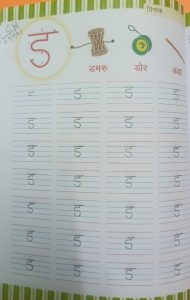 दिनांक
C.W
ड
डमरु डोर डंडा
ड ड ड ड
ड ड ड ड
ड ड ड ड
ड ड ड ड
ड ड ड ड
ड ड ड ड
ड ड ड ड